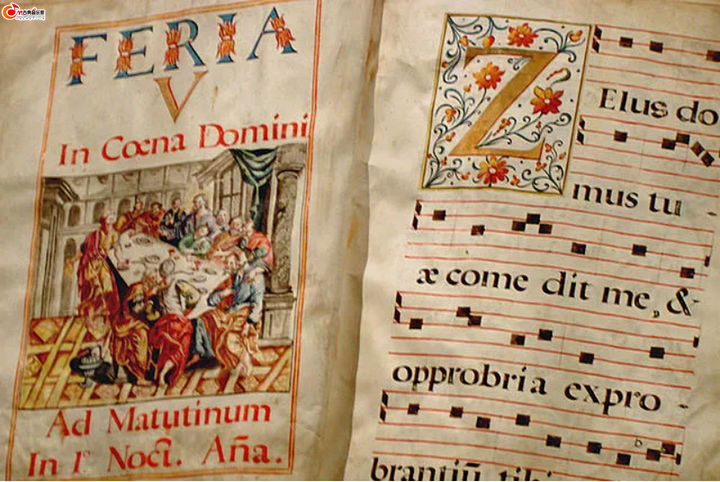 FERIA
V
In Cœna Domini
Ad Matutinum
In 1º Noct. Aña.
ZElus do
mus tu -
æ come dit me, &
opprobria expro -
brantiũ tibi